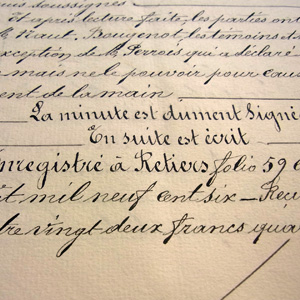 soussignés
Et après lecture faite, les parties ont
Haut. Bougenot, les témoins et
exception de M. Perrois qui a déclaré
mais ne le pouvoir pour cau
ent de la main
La minute est dument Signé
En suite est écrit
nregistré à Retiers folio 59
t mil neuf cent six _ Reçu
re vingt deux francs qua